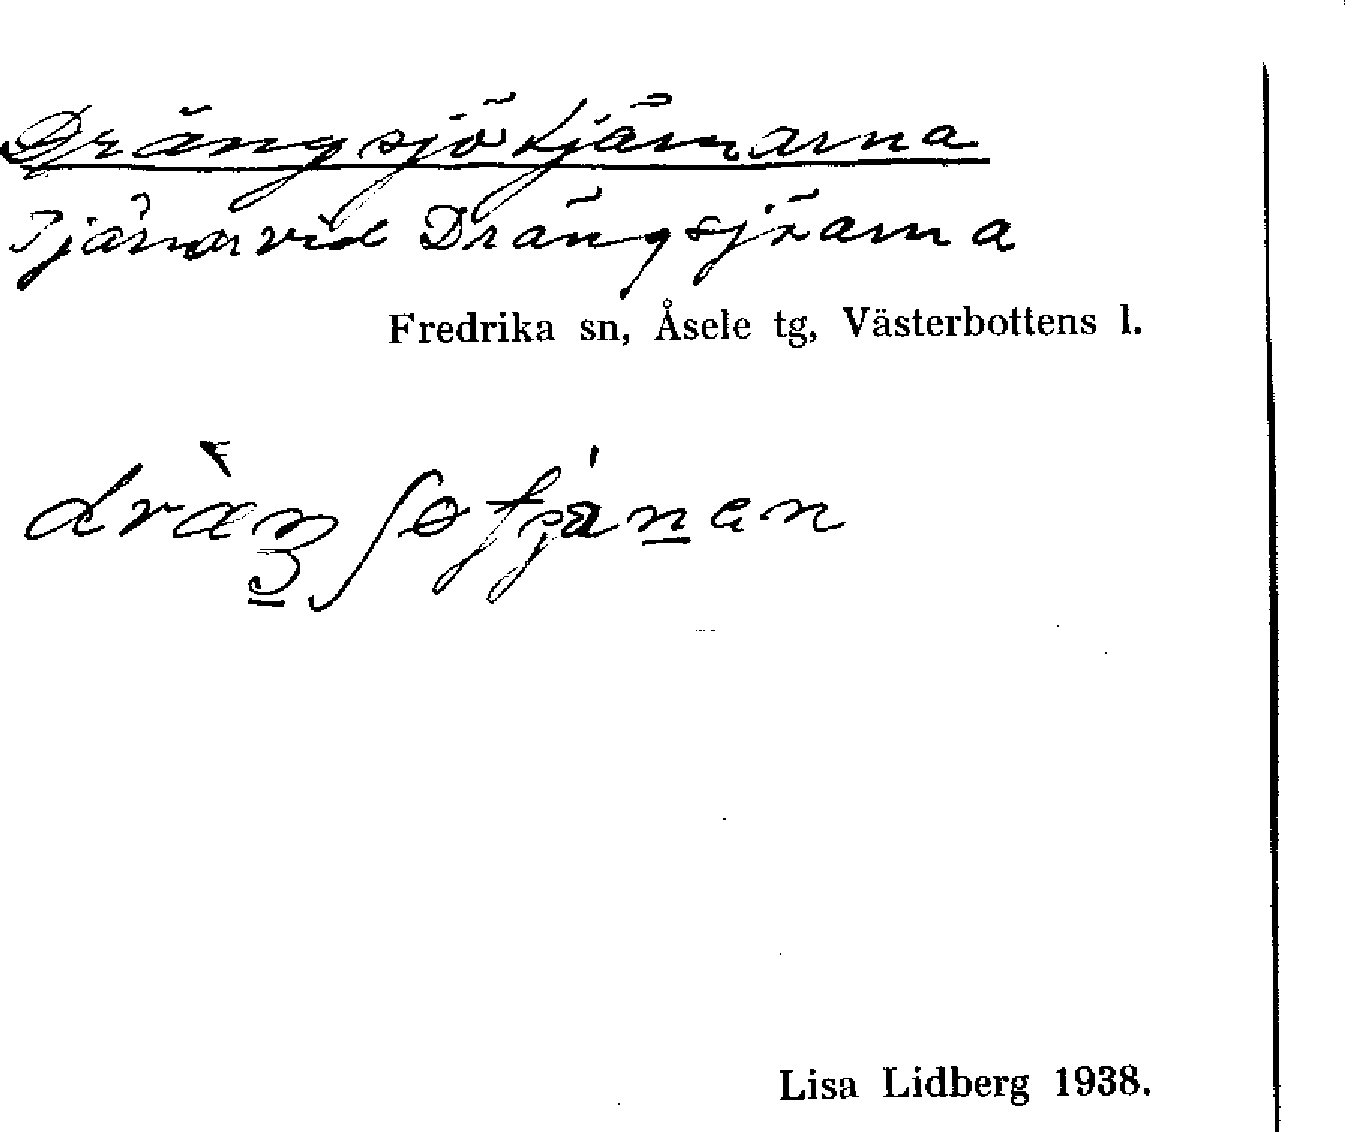 Drängsjötjärnarna
Tjärnar vid Drängsjöarna
Fredrika sn, Åsele tg, Västerbottens l.
Lisa Lidberg 1938.